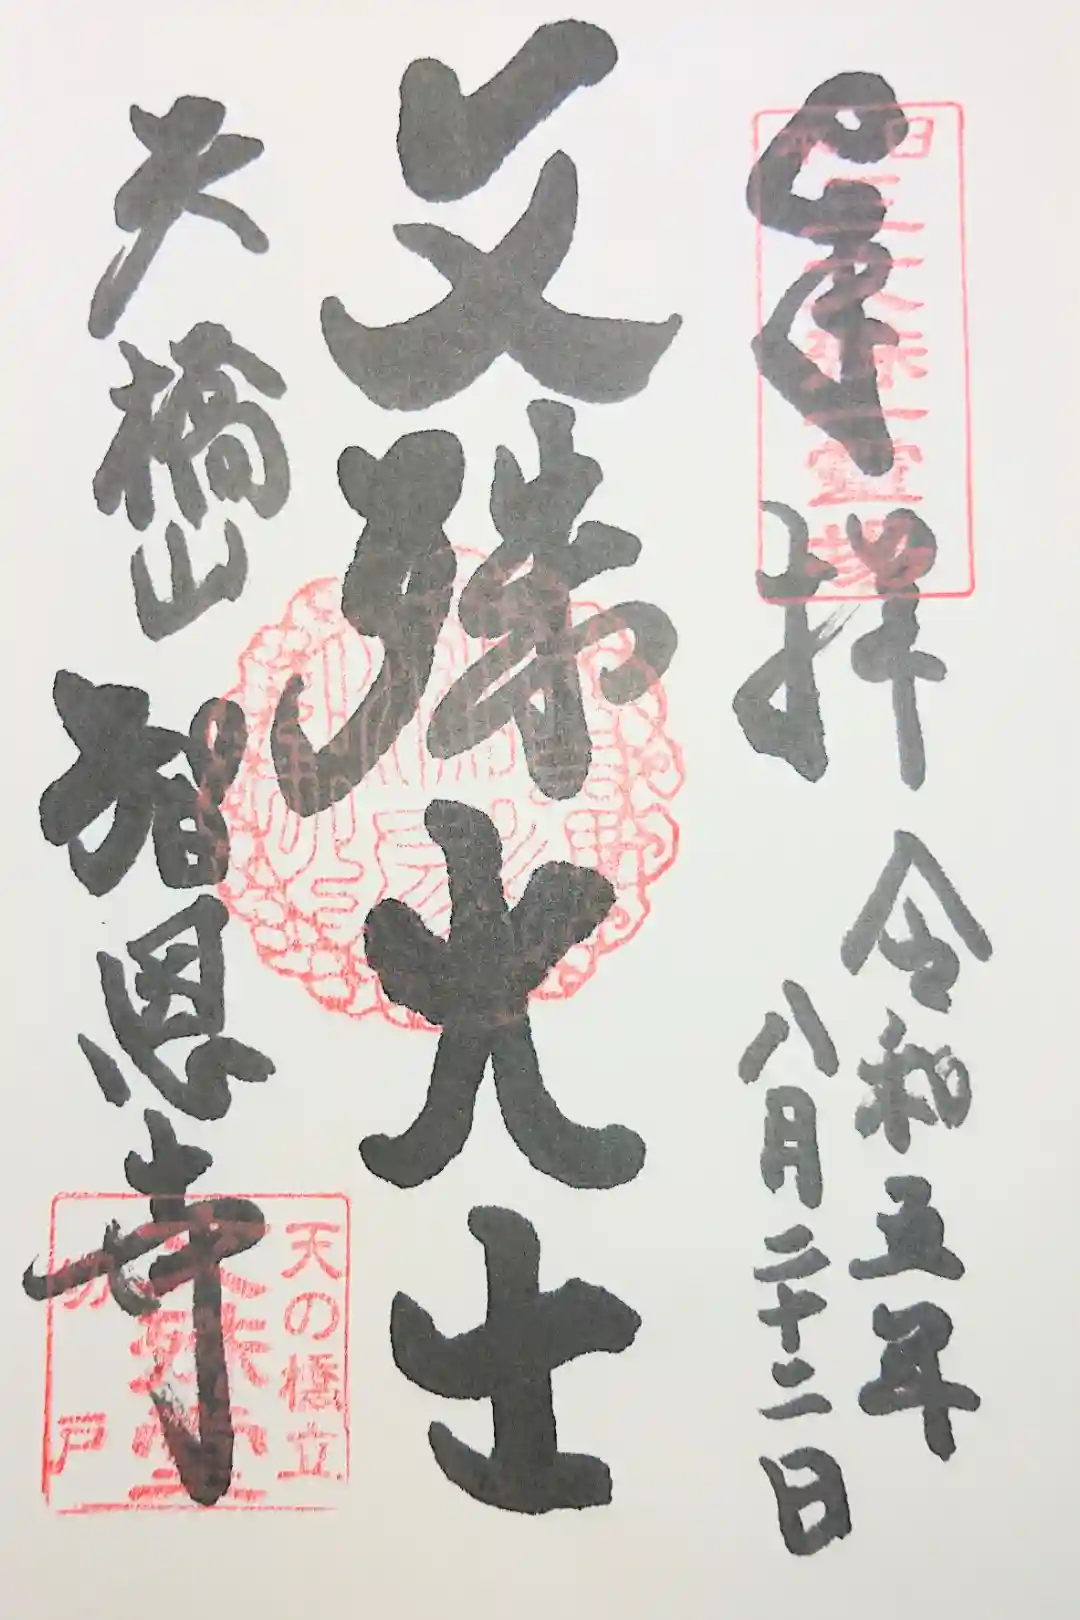 奉拝
令和五年
八月二十二日
文殊大士
天橋山
智恩寺
日本
三文殊一霊場
天の橋立
文殊堂
切戸